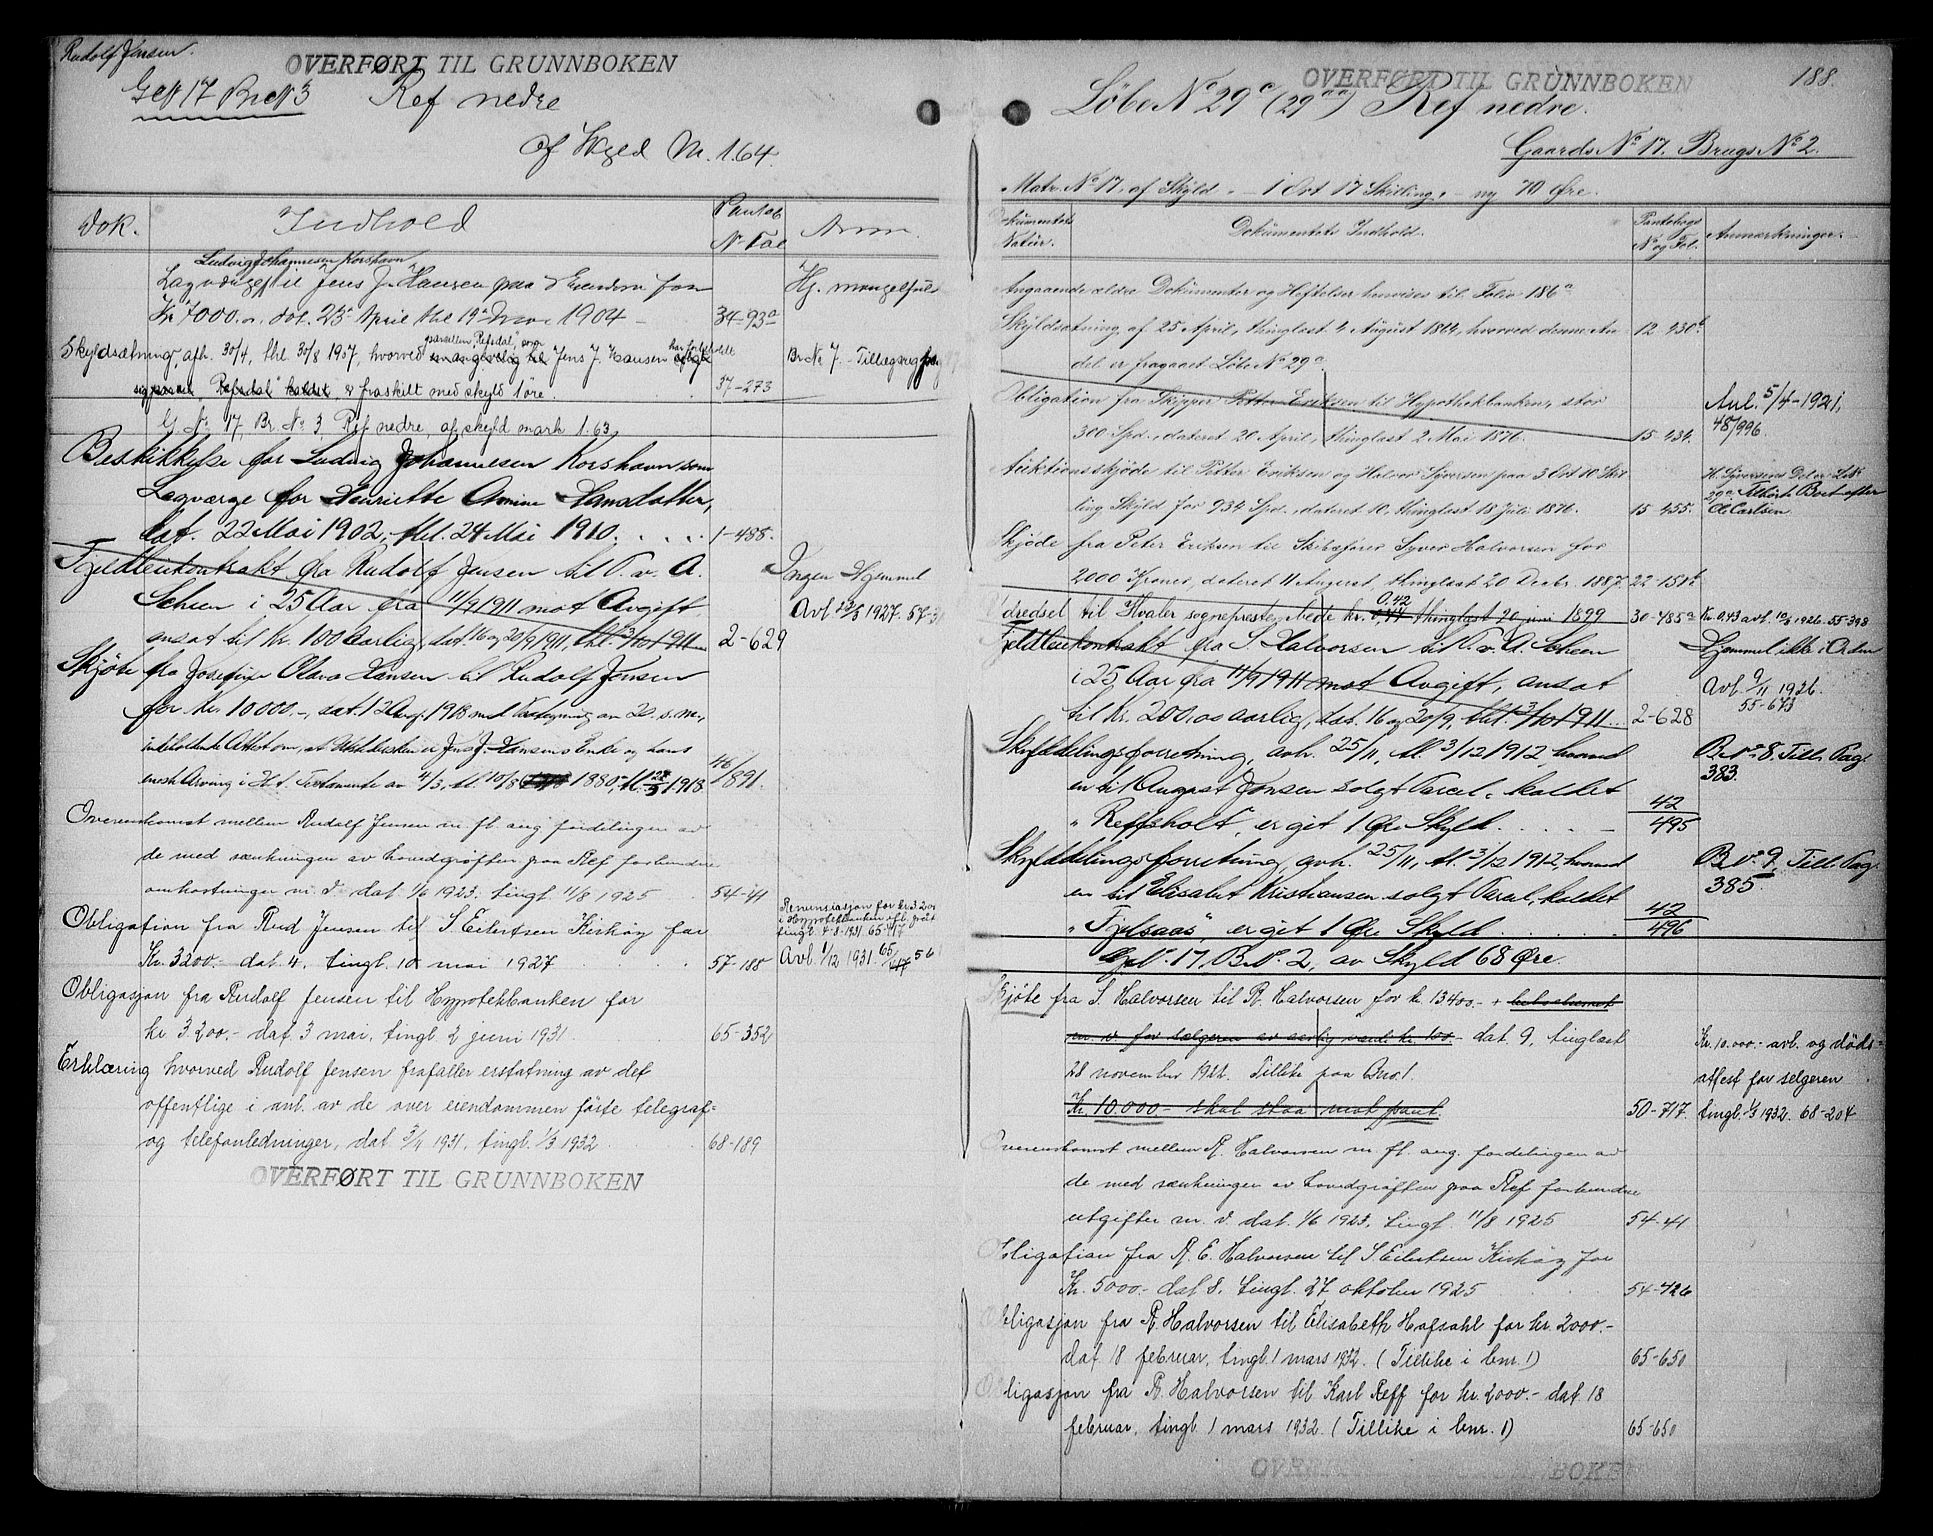 Rudolf Jensen.
OVERFØRT TIL GRUNNBOKEN
GN 17 Br N 3 Ref nedre
af Skyld M. 1.64.
Dok. Indhold Panteb N. Fol Anm.
Ludvig Johannesen Korshavn
til Jens J. Hansen paa d. Eiendom for Hj. mangelfuld
Kr 7000.00 dat. 23 April thl. 19 Nov. 1904 34-93a
parsellen "Refsdal", som har forbeholdt
Skyldsætning, afh. 30/4, thl. 30/8 1907, hvorved Jens J. Hansen Br. No 7. - Tillægsregister
"Refsdal" kaldet, er fraskilt med skyld 1 øre. 37-273
G. No. 17, Br. No. 3, Ref nedre, af skyld mark 1.63.
Beskikkelse for Ludvig Johannesen Korshavn som
Lagværge for Henriette Amine Hansdatter,
dat. 22 Mai 1902, thl. 24 Mai 1910. . . . . 1-488.
Fjeldleiekontrakt fra Rudolf Jensen til T. v. A. Ingen Hjemmel
Scheen i 25 Aar fra 11/9 1911 mot Avgift Avl. 1927. 57-
ansat til Kr. 100 aarlig, dat. 16 og 20/9 1911, thl. 3/10 1911 2-629
Skjøte fra Josefine Oldva Hansen til Rudolf Jensen
for Kr. 10000.-, dat. 12 Aug. 1918 med Paategning av 20. s. m.,
indeholdende Attest om, at Utstederen er Jens J. Hansens Enke og hans
eneste Arving i H. t. Testamente av 4/3, thl. 10/8 1880, thl. 28/3 1918 46/891.
Overenskomst mellem Rudolf Jensen m. fl. ang. fordelingen av
de med sænkningen av hovedgrøften paa Ref forbundne
omkostninger m. v. dat 1/6 1923, tingl. 11/8 1925 54-41
Renunsiasjon for kr 3200
i Hypotekbanken
Obligation fra Rud Jensen til S Eilertsen Kirkøy for tingl. 4-8-1931 65-417
Kr. 3200.- dat. 4. tingl. 10 mai 1927 57-188 Avl. 1/12 1931. 65/561
Obligasjon fra Rudolf Jensen til Hypotekbanken for
kr. 3.200.- dat. 3 mai, tingl. 2 juni 1931. 65-352
Erklæring hvorved Rudolf Jensen frafaller erstatning av det
offentlige i anl. av de over eiendommen førte telegraf-
og telefonledninger, dat. 3/4 1931, tingl. 1/3 1932 68-189
OVERFØRT TIL GRUNNBOKEN
OVERFØRT TIL GRUNNBOKEN
188.
Løbe No 29c (29aa) Ref nedre.
Gaards No 17. Brugs No 2.
Matr. No 17, af Skyld - 1 Ort 17 Skilling. - ny 70 Øre.
Dokumentets Natur. Dokumentets Indhold. Pantebogs No og Fol. Anmærkninger.
Angaaende ældre Dokumenter og Heftelser henvises til Folio 186a
Skyldsætning af 25 April, thinglæst 4 August 1864, hvorved denne An- 12 430b
del er fragaaet Løbe No 29a.
Obligation fra Skipper Petter Eriksen til Hypothekbanken, stor Avl. 5/4-1921,
300 Spd., dateret 20 April, thinglæst 2 Mai 1876. 15 434. 48/996.
Auktionsskjøde til Petter Eriksen og Halvor Syversen paa 3 Ort 10 Skil H. Syversens Del er Løb
ling Skyld for 934 Spd., dateret 10, thinglæst 18 Juli 1876. 15 455. 29a. Tilhørte Boet efter
Ol Carlsen.
Skjøde fra Peter Eriksen til Skibsfører Syver Halvorsen for
2000 Kroner, dateret 11 August, thinglæst 20 Decbr. 1887. 22-151b
0.42
Udredsel til Hvaler sogneprestembede kr. 0,44 thinglæst 20 juni 1899 30-485a Kr. 0.43 avl. 1926. 55-398
Fjeldleiekontrakt fra S. Halvorsen til T. v. A. Scheen Hjemmel ikke i Orden
i 25 Aar fra 11/9 1911 mot Avgift, ansat Avl. 9/11 1926.
til Kr. 200.00 aarlig, dat. 16 og 20/9, thl. 3/10 1911. 2-628 55-673
Skylddelingsforretning, avh. 25/11, thl. 3/12 1912, hvorved B. No. 8. Till. Pag.
en til August Jensen solgt Parcel, kaldet 383.
"Reffsholt", er git 1 Øre Skyld. . . . . 42/495
Skylddelingsforretning avh. 25/11, thl. 3/12 1912, hvorved B. No. 9. Till. Pag.
en til Elisabet Kristiansen solgt Parcel, kaldet 385.
"Fjelsaas", er git 1 Øre Skyld. . . . . 42/496
G. No. 17, B. No. 2, av Skyld 68 Øre.
Skjøte fra S. Halvorsen til R. Halvorsen for kr. 13400.- +
m. v. for sælgeren av aarlig værdi kr. 100.- dat. 9, tinglæst Kr. 10.000.- avl. og døds-
28 november 1922. Tillike paa Bno. 1. attest for selgeren
Kr. 10.000.- skal staa mot pant 50-717. tingl. 1/3 1932. 68-204
Overenskomst mellem R. Halvorsen m. fl. ang. fordelingen av
de med sænkninger av hovedgrøften paa Ref forbundne
utgifter m. v. dat. 1/6 1923, tingl. 11/8 1925 54-41
Obligation fra R. E. Halvorsen til S. Eilertsen Kirkøy for
Kr. 5000.- dat 8. tingl. 27 oktober 1925 54-726
Obligasjon fra R. Halvorsen til Elisabeth Hafsahl for kr. 2000.-
dat. 18 februar, tingl. 1 mars 1932. (Tillike i bnr. 1) 65-650
Obligasjon fra R. Halvorsen til Karl Reff for kr. 2000.- dat. 18
februar, tingl. 1 mars 1932. (Tillike i bnr. 1) 65-650
OVERFØRT TIL GRUNNBOKEN